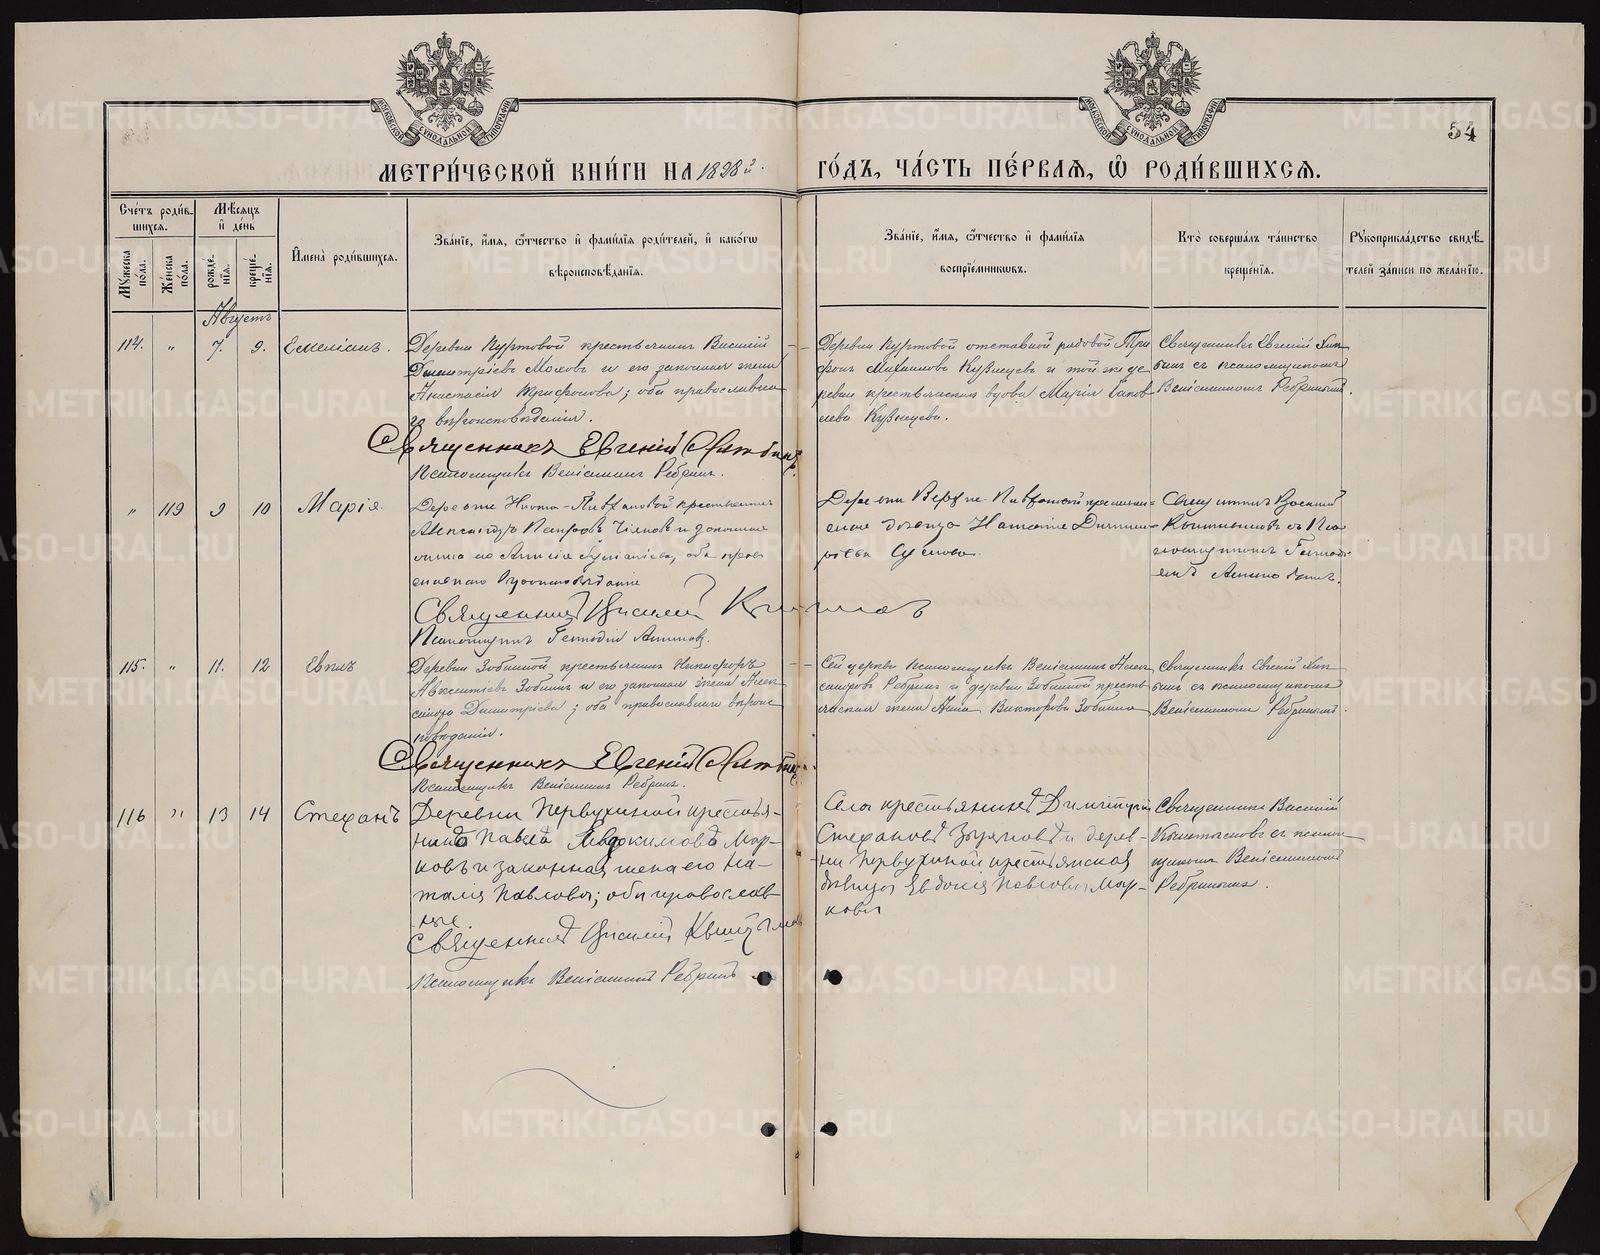 МОСКОВСКОЙ СУНОДАЛЬНОЙ ТИПОГРАФІИ
МОСКОВСКОЙ СУНОДАЛЬНОЙ ТИПОГРАФІИ
54
МЕТРИ́ЧЕСКОЙ КНИ́ГИ НА 1898й ГО́ДЪ, ЧА́СТЬ ПЕ́РВАѦ, Ѡ РОДИ́ВШИХСѦ.
Сче́тъ роди́в-
шихся.
Мѣ́сяцъ
и҆ де́нь
Мꙋ́жеска по́ла.
Же́нска по́ла.
рожде́нїя.
креще́нїя.
И҆мена̀ роди́вшихся.
Зва́нїе, и҆́мя, ѻ҆́тчество и҆ фами́лїя роди́телей, и҆ како́гѡ
вѣроисповѣ́данїя.
Зва́нїе, и҆́мя, ѻ҆́тчество и҆ фами́лїя
воспрїе́мниковъ.
Кто̀ соверша́лъ та́инство
креще́нїя.
Рꙋкоприкла́дство свидѣ́-
телей за́писи по жела́нїю.
Августъ
114. " 7. 9. Емеліанъ.
Деревни Куртовой крестьянинъ Василій
Димитріевъ Моховъ и его законная жена
Анастасія Трифонова; оба православна
го вѣроисповѣданія.
Священникъ Евгеній
Псаломщикъ Веніаминъ Ребринъ.
Деревни Куртовой отставной рядовой Три
фонъ Михаиловъ Кузнецовъ и той же де
ревни крестьянская вдова Марія Іаков
лева Кузнецова.
Священникъ Евгеній
съ псаломщикомъ
Веніаминомъ Ребринымъ.
" 119 9 10 Марія
Деревни крестьянинъ
Александръ Петровъ и законная
жена его оба право
славнаго вѣроисповѣданія
Священникъ Василій
Псаломщикъ Геннадій
Деревни крестьян-
ская дѣвица Наталія Димит-
ріева
Священникъ Василій
съ Пса
ломщикомъ Геннаді
емъ
115. " 11. 12 Евплъ
Деревни Зобниной крестьянинъ Никифоръ
Авксентіевъ Зобнинъ и его законная жена Алек
сандра Димитріева; оба православнаго вѣроис
повѣданія.
Священникъ Евгеній
Псаломщикъ Веніаминъ Ребринъ.
Сей церкви псаломщикъ Веніаминъ Алек
сандровъ Ребринъ и деревни Зобниной кресть
янская жена Анна Викторова Зобнина
Священникъ Евгеній
съ псаломщикомъ
Веніаминомъ Ребринымъ.
116 " 13 14 Стефанъ
Деревни Первухиной крестья-
нинъ Павелъ Евдокимовъ Мар-
ковъ и законная жена его На-
талія Павлова; оба православ
ные.
Священникъ Василій
Псаломщикъ Веніаминъ Ребринъ
Села крестьянинъ Димитрій
Стефановъ Зыряновъ и дерев-
ни Первухиной крестьянская
дѣвица Евдокія Павлова Мар-
кова
Священникъ Василій
съ псалом
щикомъ Веніаминомъ
Ребринымъ.
METRIKI.GASO-URAL.RU